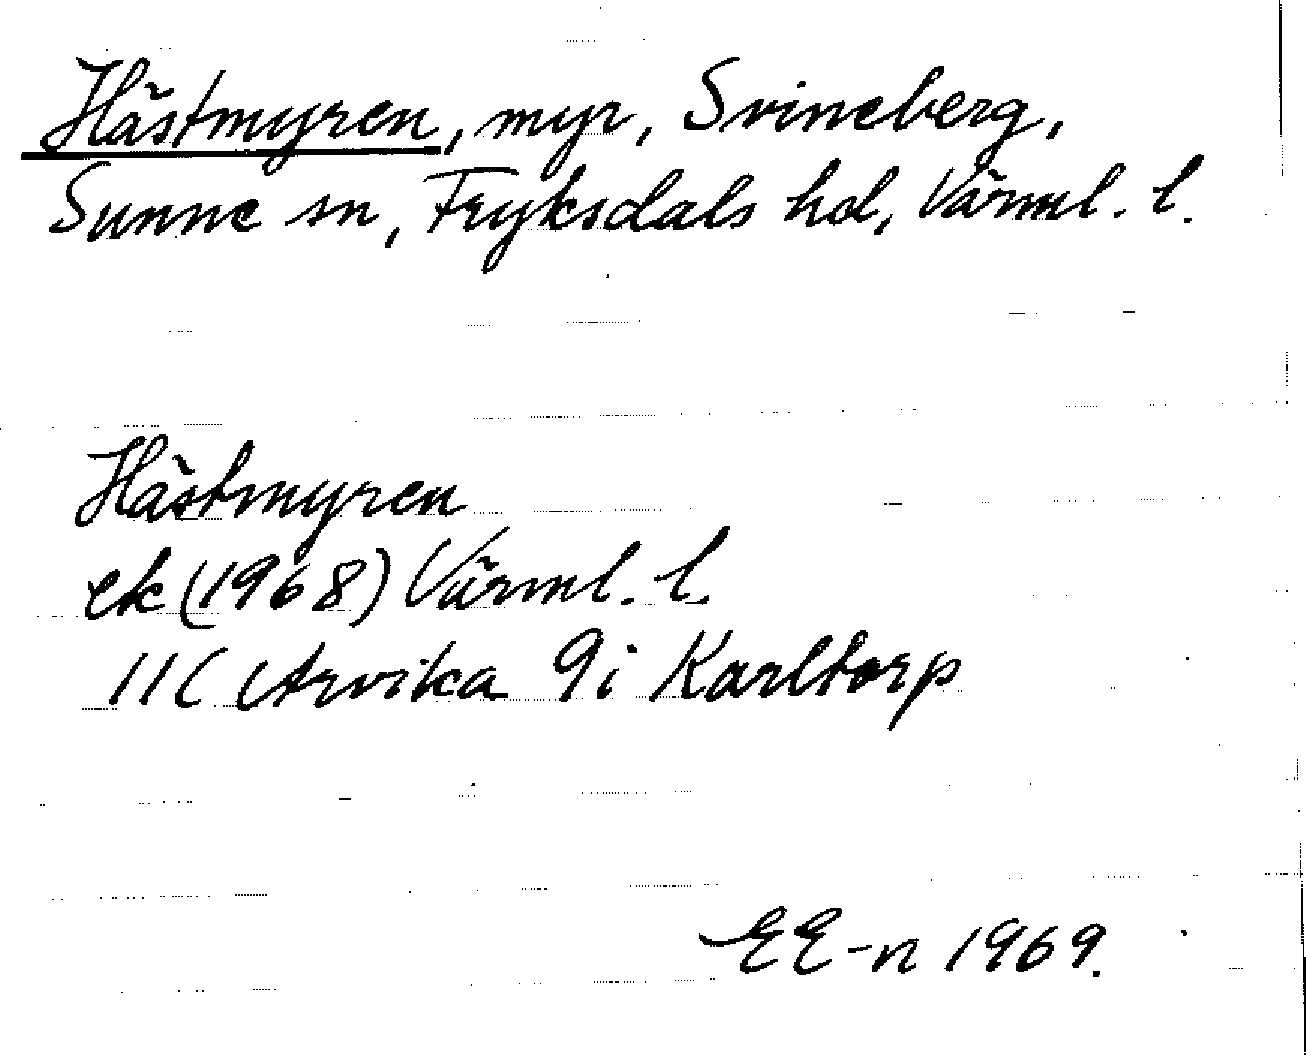 Hästmyren, myr, Svineberg,
Sunne sn, Fryksdals hd, Värml. l.
Hästmyren
ek (1968) Värml. l.
11C Arvika 9i Karltorp
EE-n 1969.